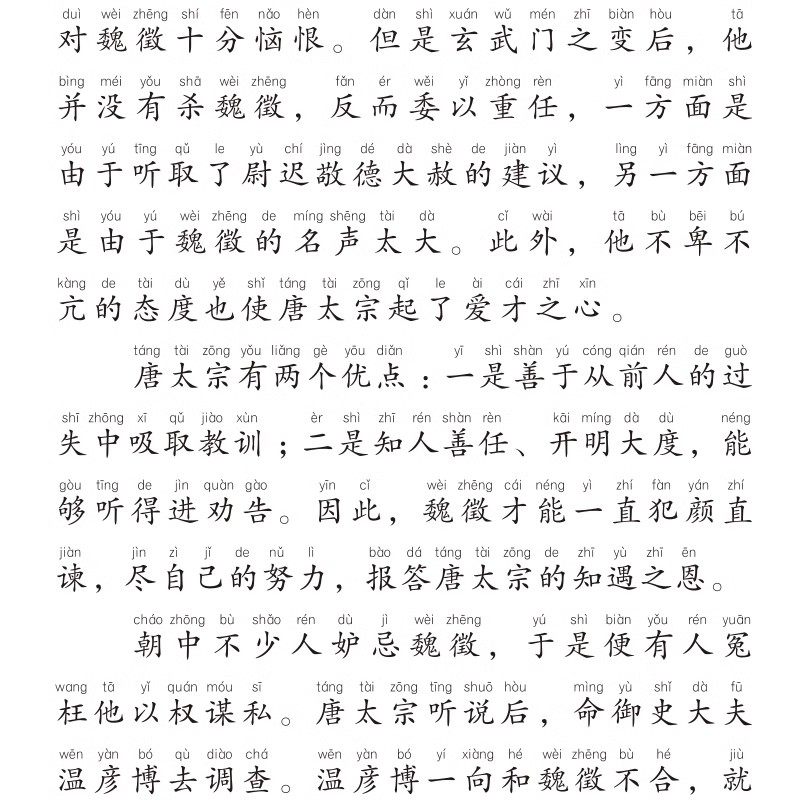 duì wèi zhēng shí fēn nǎo hèn dàn shì xuán wǔ mén zhī biàn hòu tā
对魏徵十分恼恨。但是玄武门之变后，他
bìng méi yǒu shā wèi zhēng fǎn ér wěi yǐ zhòng rèn yì fāng miàn shì
并没有杀魏徵，反而委以重任，一方面是
yóu yú tīng qǔ le yù chí jìng dé dà shè de jiàn yì lìng yì fāng miàn
由于听取了尉迟敬德大赦的建议，另一方面
shì yóu yú wèi zhēng de míng shēng tài dà cǐ wài tā bù bēi bú
是由于魏徵的名声太大。此外，他不卑不
kàng de tài dù yě shǐ táng tài zōng qǐ le ài cái zhī xīn
亢的态度也使唐太宗起了爱才之心。
táng tài zōng yǒu liǎng gè yōu diǎn yī shì shàn yú cóng qián rén de guò
唐太宗有两个优点：一是善于从前人的过
shī zhōng xī qǔ jiào xùn èr shì zhī rén shàn rèn kāi míng dà dù néng
失中吸取教训；二是知人善任、开明大度，能
gòu tīng de jìn quàn gào yīn cǐ wèi zhēng cái néng yì zhí fàn yán zhí
够听得进劝告。因此，魏徵才能一直犯颜直
jiàn jìn zì jǐ de nǔ lì bào dá táng tài zōng de zhī yù zhī ēn
谏，尽自己的努力，报答唐太宗的知遇之恩。
cháo zhōng bù shǎo rén dù jì wèi zhēng yú shì biàn yǒu rén yuān
朝中不少人妒忌魏徵，于是便有人冤
wang tā yǐ quán móu sī táng tài zōng tīng shuō hòu mìng yù shǐ dà fū
枉他以权谋私。唐太宗听说后，命御史大夫
wēn yàn bó qù diào chá wēn yàn bó yí xiàng hé wèi zhēng bù hé jiù
温彦博去调查。温彦博一向和魏徵不合，就